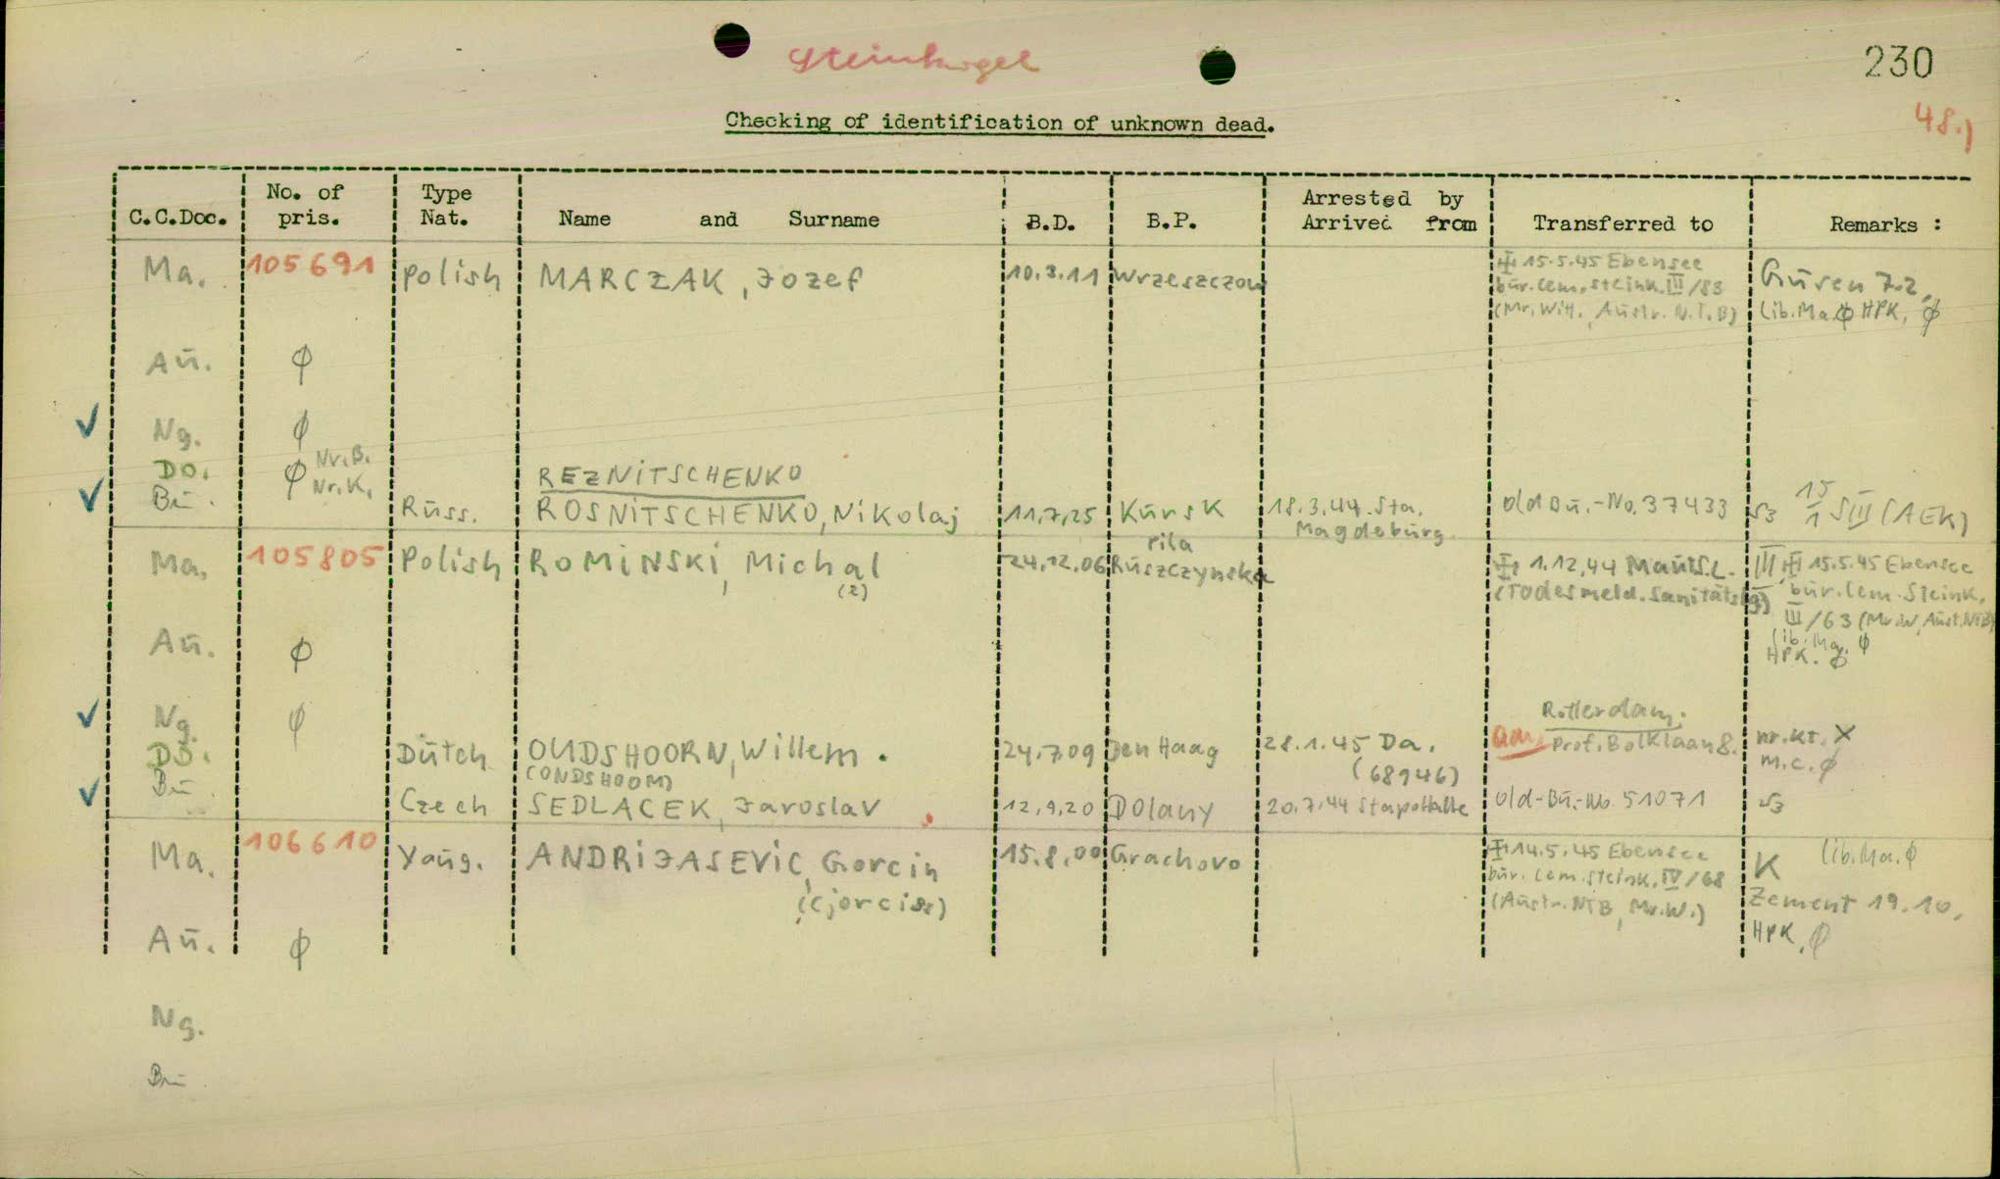 Steinkogel
230
48.)
Checking of identification of unknown dead.
C.C.Doc. No. of pris. Type Nat. Name and Surname B.D. B.P. Arrested by Arrived from Transferred to Remarks :
Ma. 105691 polish MARCZAK, Jozef 10.3.11 Wrzeszczow
15.5.45 Ebensee
bür. Cem. Steink. III/83
(Mr. Witt., Austr. N.T.B)
Güsen 7.2,
lib. Ma. ϕ HPK, ϕ
Aū. ϕ
Ng. ϕ
DO. ϕ Nr.B.
Nr.K.
REZNITSCHENKO
Bū. Rūss. ROSNITSCHENKO, Nikolaj 11.7.25 Kūrsk 18.3.44. Sta. Magdebūrg old Bū.-No. 37433 15/1 SIII (AEK)
Ma. 105805 Polish ROMINSKI, Michal (2) 24.12.06 Pila Rūszczynska
1.12.44 Maūts.L.
(Todesmeld. Sanitätslg)
III 15.5.45 Ebensee
bür. Cem. Steink.
III/63 (Mr.W, Aust. NTB)
lib. Ma. ϕ
HPK. ϕ
Aū. ϕ
Ng. ϕ
DO. Dūtch OUDSHOORN, Willem. 24.7.09 Den Haag 28.1.45 Da.
(ONDSHOOM)
(68946)
Rotterdam.
Prof. Bolklaan 8.
nr. kt. X
m.c. ϕ
Bū. Czech SEDLACEK, Jaroslav 12.9.20 Dolany 20.7.44 Stapo Halle old-Bū.-No. 51071
Ma. 106610 Yaūg. ANDRIJASEVIC, Gorcin 15.8.00 Grachovo
(Cjorciss)
14.5.45 Ebensee
bür. Cem. Steink. IV/68
(Aūstr. NTB, Mr.W.)
K lib. Ma. ϕ
Zement 19.10.
HPK, ϕ
Aū. ϕ
Ng.
Bū.